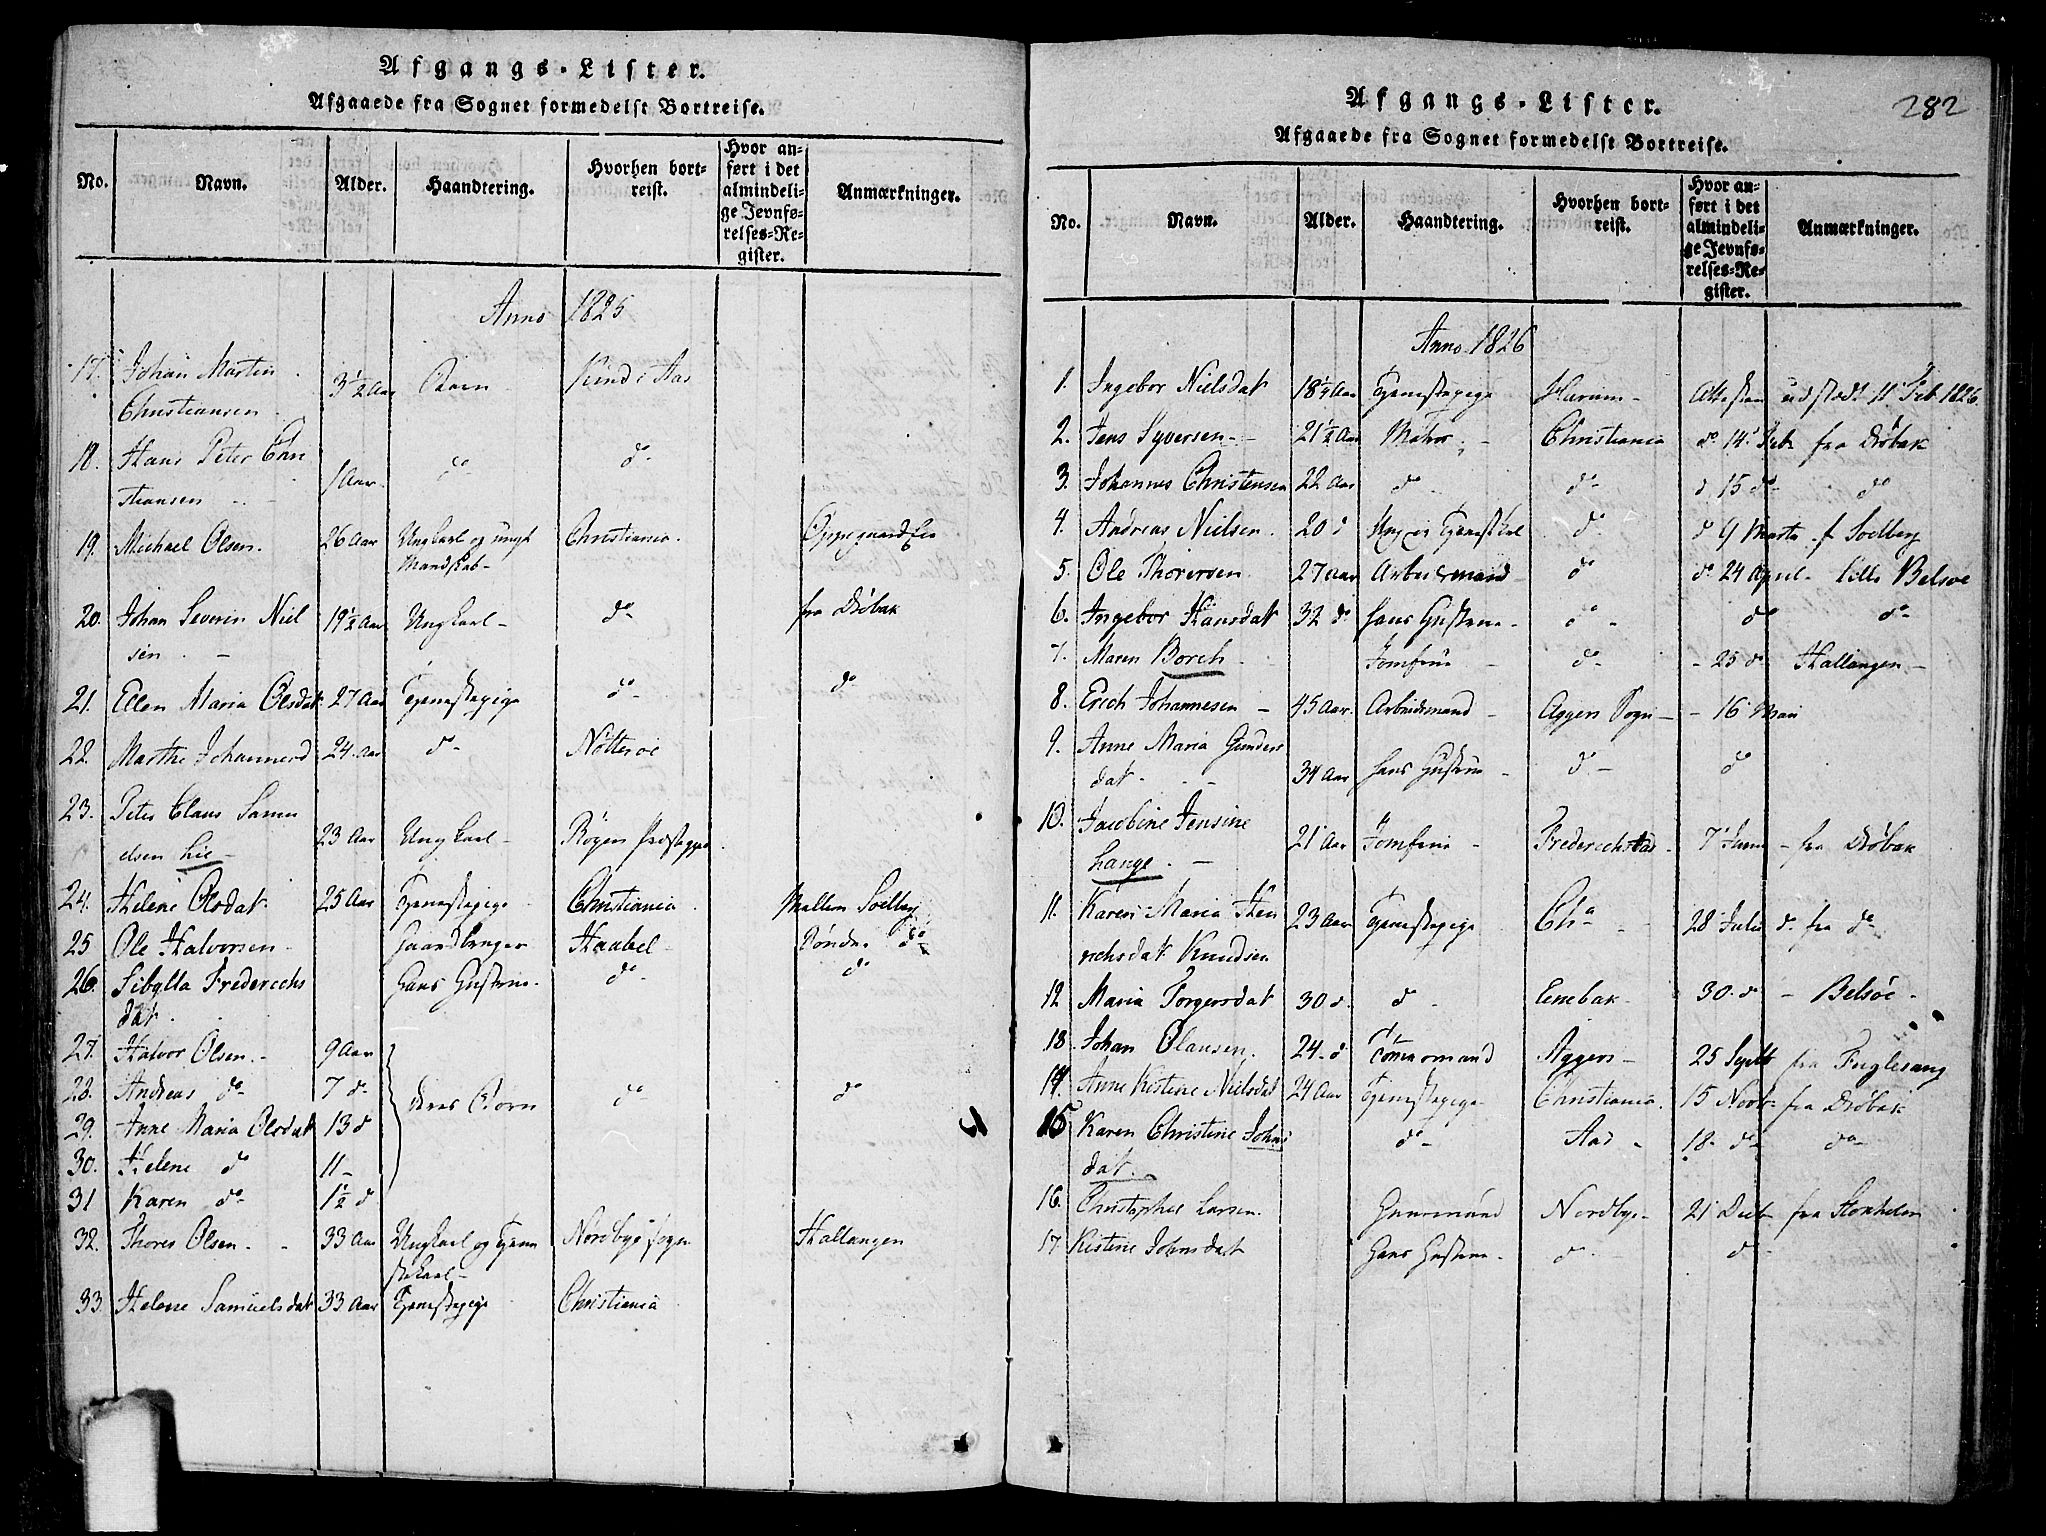 Afgangs-Lister.
Afgaaede fra Sognet formedelst Bortreise.
No. Navn. Alder. Haandtering. Hvorhen bortreist. Hvor anført i det almindelige Jevnførelses-Register. Anmærkninger.
Anno 1825
17. Johan Martin
Christiansen 3½ Aar Barn Kind i Aas
18. Hans Peter Chri
stiansen 1 Aar do do
19. Michael Olsen. 26 Aar Ungkarl og ungt Christiania. Oppegaard Eie
Mandskab
20. Johan Severin Niel 19½ Aar Ungkarl do fra Drøbak
sen
21. Ellen Maria Olsdat 27 Aar Tjenestepige do do
22. Marthe Johannesd 24 Aar do Nøtterøe
23. Peter Claus Samu
elsen Lie 23 Aar Ungkarl Røgen Præstegjd
24. Helene Olsdat 25 Aar Tjenestepige Christiania Mellem Soelberg
25 Ole Halvorsen Gaardbruger Haabel Søndre do
26. Sibylla Frederechs Hans Hustrue do do
dat.
27. Halvor Olsen 9 Aar
28. Andreas do 7 do deres Børn do do
29. Anne Maria Olsdat 13 d
30. Helene do 11
31 Karen do 1½ d
32. Thores Olsen 33 Aar Ungkarl og Tjene Nordbye sogn Hallangen
stekarl
33. Helene Samuelsdat 33 Aar Tjenestepige Christiania
282
Afgangs-Lister.
Afgaaede fra Sognet formedelst Bortreise.
No. Navn. Alder. Haandtering. Hvorhen bortreist. Hvor anført i det almindelige Jevnførelses-Register. Anmærkninger.
Anno 1826
1. Ingebor Nielsdat 18¼ Aar Tjenestepige Attesten udstædt 11 Feb 1826.
2. Jens Syversen 21½ Aar Matros Christiania do 14 Feb fra Drøbak
3. Johannes Christensen 22 Aar do do d 15 do do
4. Andreas Nielsen. 20 d Tjenestkarl do d 9 Marts f Soelberg
5. Ole Thorersen 27 Aar Arbeidsmand do do 24 April Lille Belsøe
6. Ingebor Hansdat 32 do hans Hustrue do do do
7. Maren Borch Jomfrue do 25 d Hallangen
8. Erich Johannesen 45 Aar Arbeidsmand Aggers Sogn 16 Mai
9. Anne Maria Gunders
dat 34 Aar hans Hustrue do do
10. Jacobine Jensine
Lange 21 Aar Jomfrue Frederechstad 7 Juni fra Drøbak
11. Karen Maria Hen 23 Aar Tjenestepige Cha 28 Julii d. fra do
rechsdat Knudsen
12 Maria Torgersdat 30 d. d Eenebak 30. d Belsøe
13 Johan Olausen 24 d Tømermand Aggers 25 Septb fra Fuglesang
14. Anne Kirstine Nielsdat 24 Aar Tjenestepige Christiania 15 Novb fra Drøbak
15 Karen Christine Johns do Aas 18 do do
dat.
16. Christopher Larsen. Huusmand Nordbye 21 Decb fra
17 Kirstine Johnsdat Hans Hustrue do do